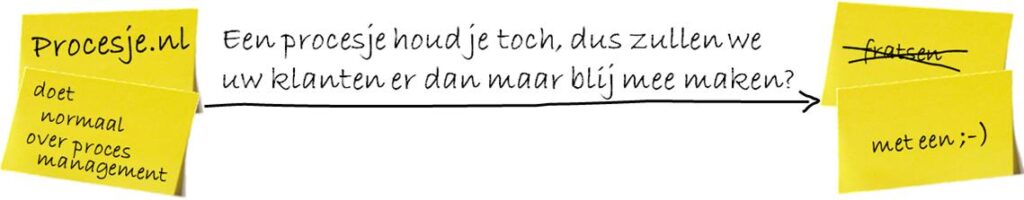 Procesje.nl
doet
normaal
over proces
management
Een procesje houd je toch, dus zullen we
uw klanten er dan maar blij mee maken?
fratsen
met een ;-)